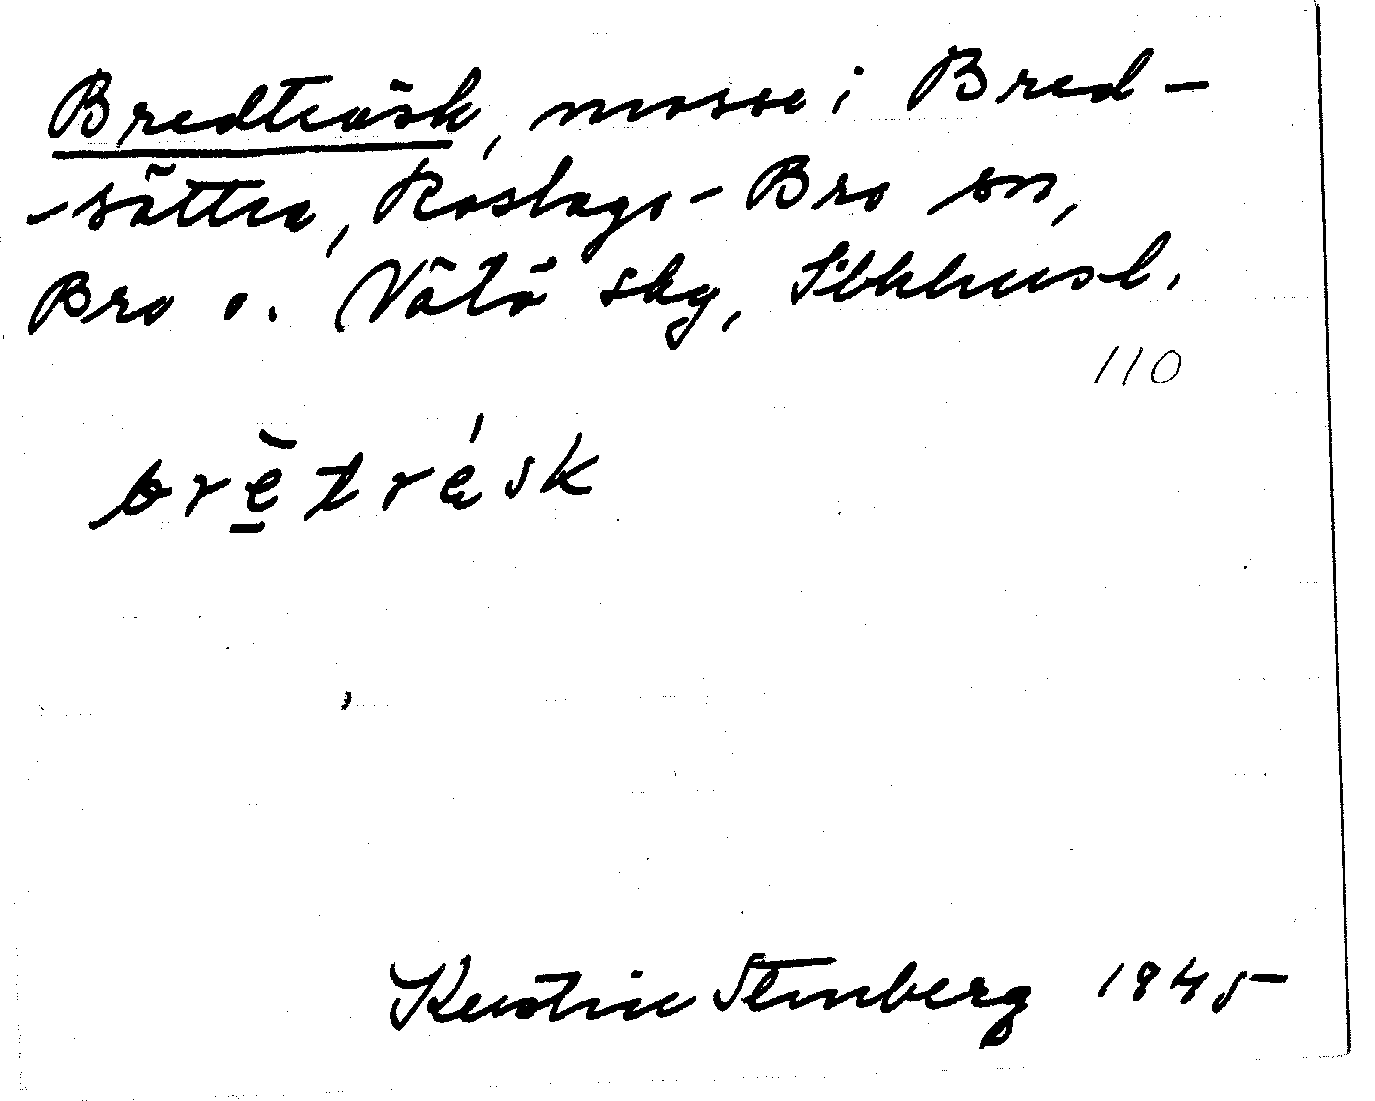 Bredträsk, mosse i Bred-
-sättra, Roslags-Bro sn,
Bro o. Vätö skg, Sthlms l.
110
brètrésk
Kerstin Stenberg 1945